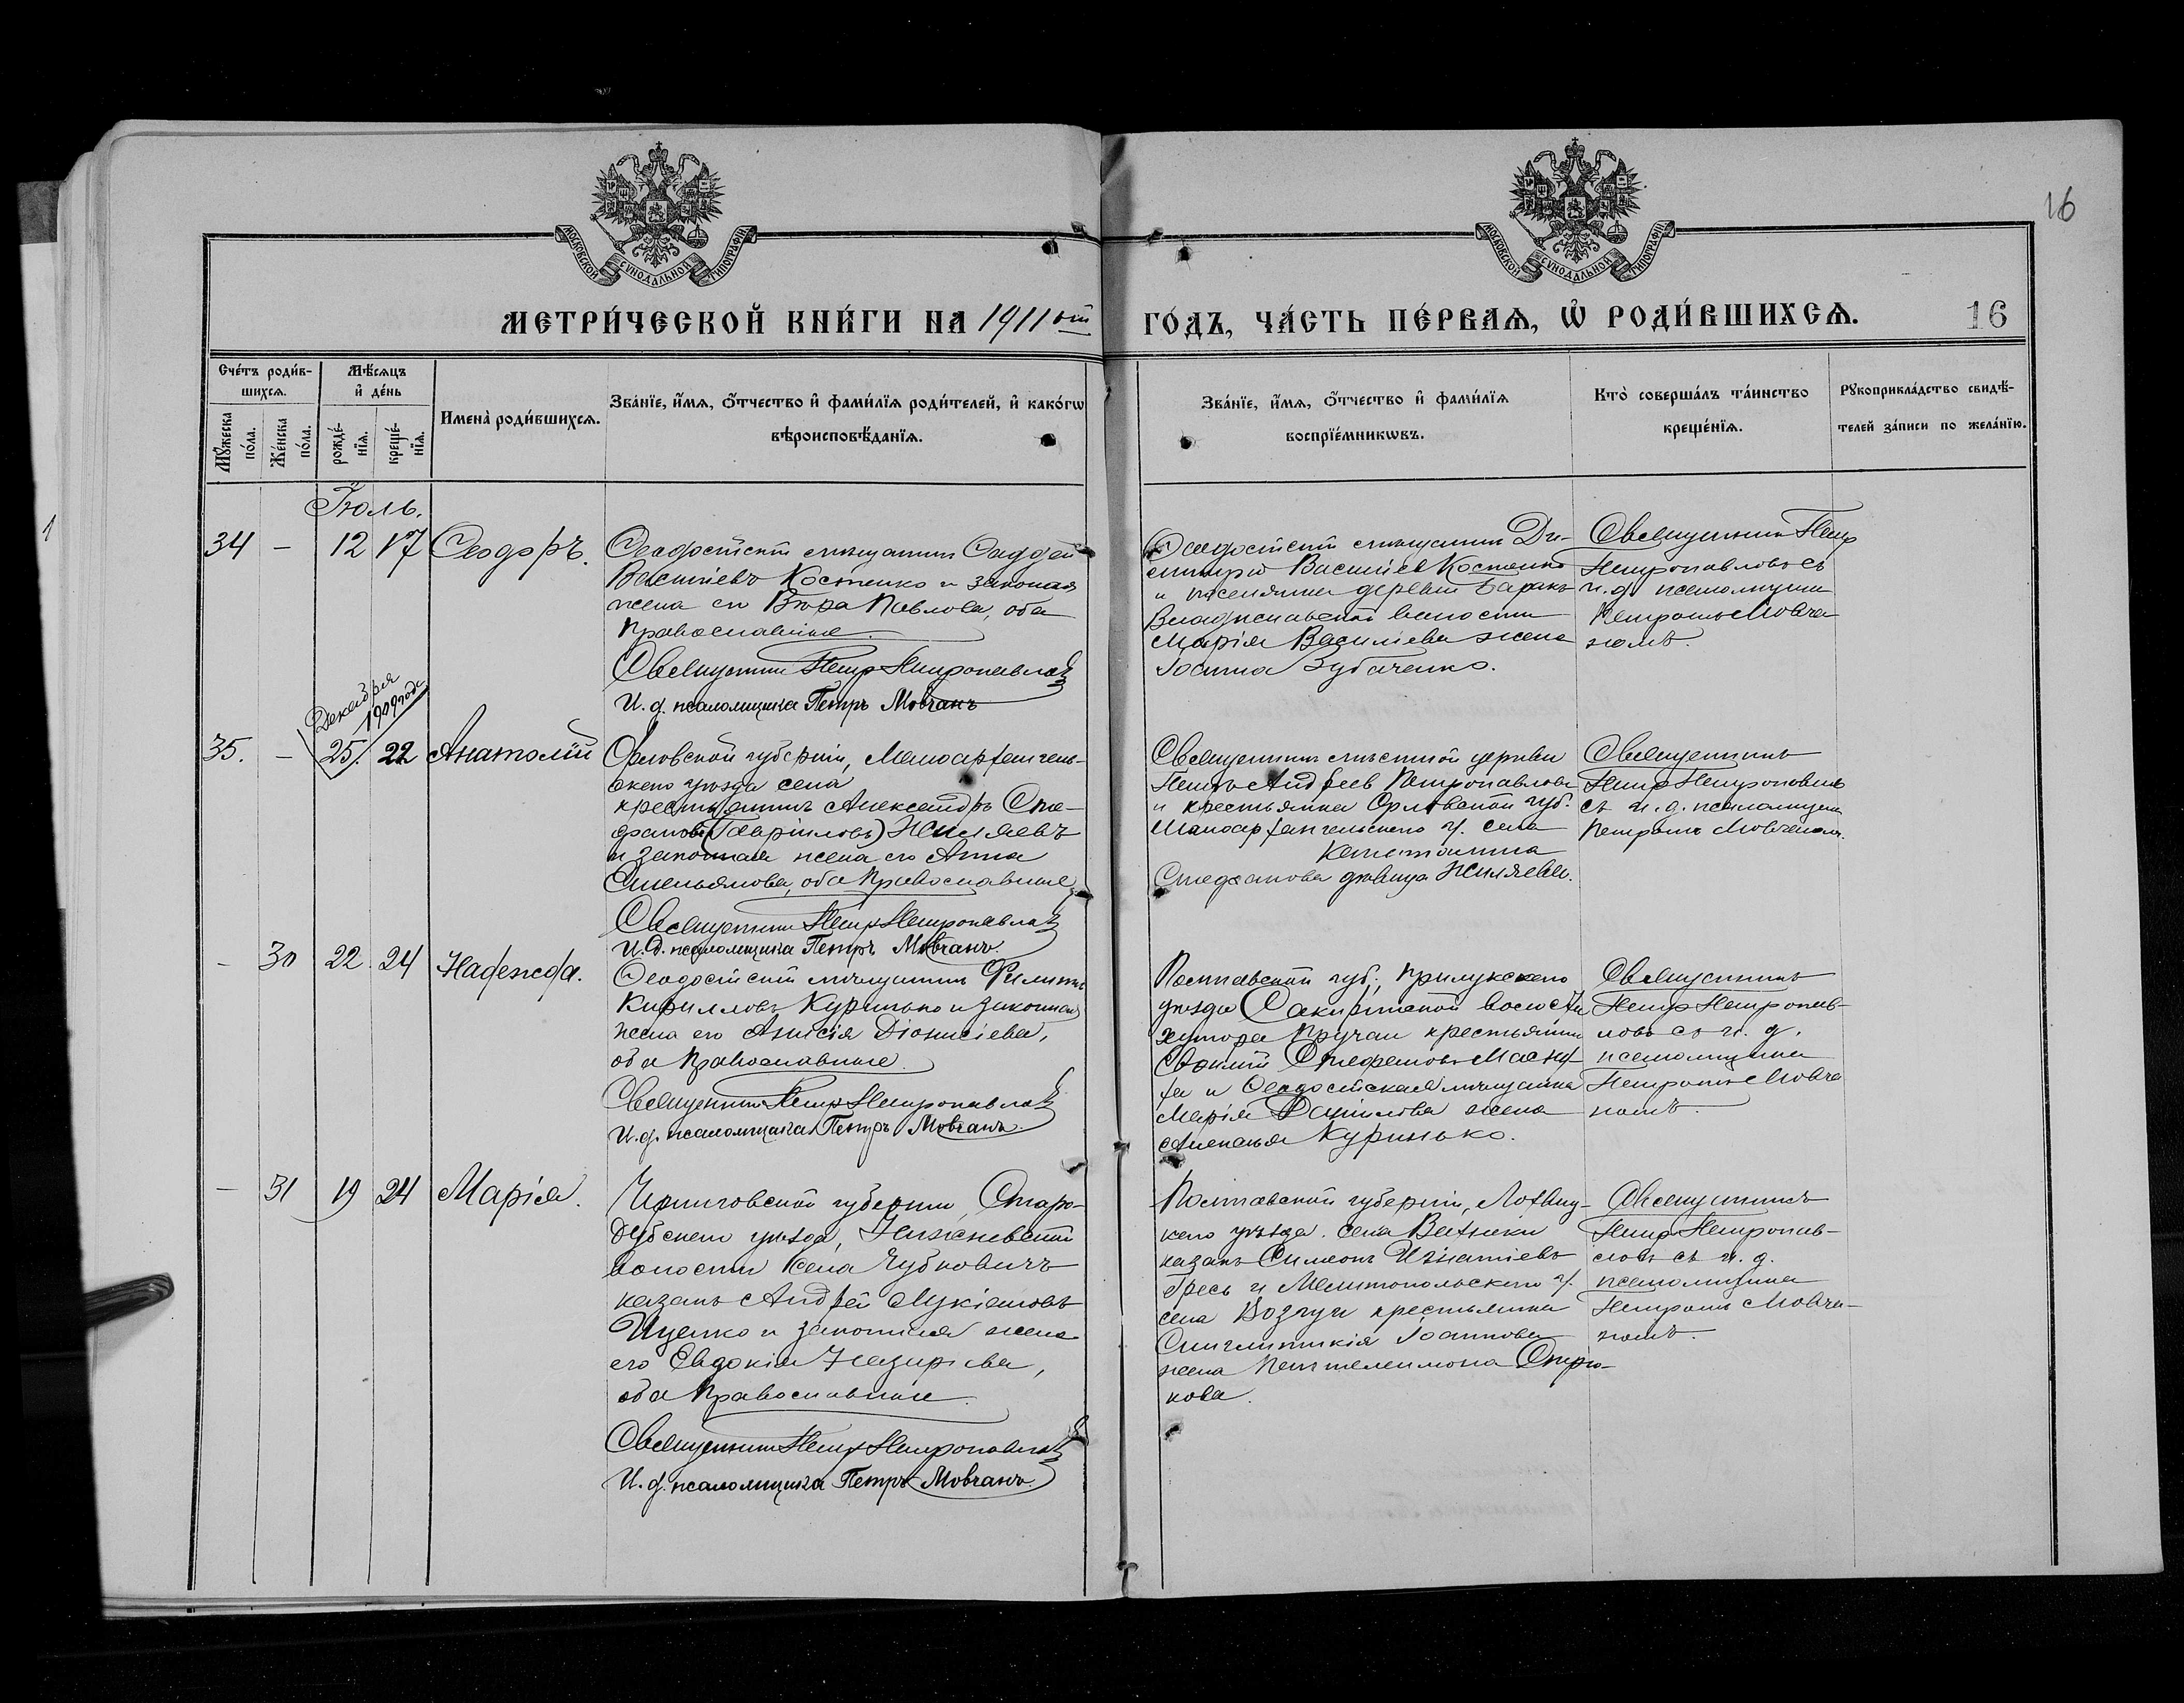 16
МОСКОВСКОЙ СѴНОДАЛЬНОЙ ТИПОГРАФІИ
МОСКОВСКОЙ СѴНОДАЛЬНОЙ ТИПОГРАФІИ
МЕТРИ́ЧЕСКОЙ КНИ́ГИ НА 1911 ый ГО́ДЪ, ЧА́СТЬ ПЕ́РВАѦ, Ѡ҆ РОДИ́ВШИХСѦ. 16
Сче́тъ роди́в-
шихсѧ.
Мꙋ́жеска
по́ла.
Же́нска
по́ла.
Мѣ́сѧцъ
и҆ де́нь
рожде́-
нїѧ.
креще́-
нїѧ.
Имена̀ роди́вшихсѧ.
Зва́нїе, и҆́мѧ, ѻ҆́тчество и҆ фами́лїѧ роди́телей, и҆ како́гѡ
вѣроисповѣ́данїѧ.
Зва́нїе, и҆́мѧ, ѻ҆́тчество и҆ фами́лїѧ
воспрїе́мникѡвъ.
Кто̀ соверша́лъ та́инство
креще́нїѧ.
Рꙋкоприкла́дство свидѣ́-
телей за́писи по жела́нїю.
Іюль.
34 — 12 17 Ѳеодоръ.
Ѳеодосійскій мѣщанинъ Ѳаддей
Василіевъ Костенко и законая
жена его Вѣра Павлова, оба
Православные.
Священникъ Петръ Петропавловъ
И. д. псаломщика Петръ Мовчанъ
Ѳеодосійскій мѣщанинъ Ди-
митрій Василіев Костенко
и поселянка деревни Баракъ
Владиславской волости
Марія Василіева жена
Іоанна Зубаченко.
Священникъ Петр
Петропавловъ съ
и. д. псаломщика
Петромъ Мовча
номъ.
Декабря
1909 года
35. — 25. 22 Анатолій
Орловской губерніи, Малоархангель-
скаго уѣзда села
крестьянинъ Александръ Сте-
фановъ (Гавріиловъ) Жиляевъ
и законная жена его Анна
Емельянова, оба Православные
Священникъ Петръ Петропавловъ
И. д. псаломщика Петръ Мовчанъ.
Священникъ мѣстной церкви
Петръ Андреев Петропавловъ
и крестьянка Орловской губ.
Малоархангельскаго у. села
Стефанова дѣвица Жиляева.
Священникъ
Петръ Петропавловъ
съ и. д. псаломщика
Петромъ Мовчаномъ.
— 30 22 24 Надежда.
Ѳеодосійскій мѣщанинъ Филиппъ
Кирилловъ Куринько и законная
жена его Анисія Діонисіева,
оба Православные.
Священникъ Петръ Петропавловъ
И. д. псаломщика Петръ Мовчанъ.
Полтавской губ., Прилукскаго
уѣзда волости
хутора крестьянинъ
Стефановъ
и Ѳеодосійская мѣщанка
Марія жена
Куринько.
Священникъ
Петръ Петропав-
ловъ съ и. д.
псаломщика
Петромъ Мовча
номъ.
— 31 19 24 Марія.
Черниговской губерніи, Старо-
дубскаго уѣзда,
волости села Чубковичъ
казакъ Андрей Лукіановъ
Иценко и законная жена
его Евдокія Назаріева,
оба Православные.
Священникъ Петръ Петропавловъ
И. д. псаломщика Петръ Мовчанъ.
Полтавской губерніи, Лохвиц-
каго уѣзда. села
казакъ Симеонъ Игнатіевъ
Гресь и Мелитопольскаго у.
села крестьянка
Синклитикія Іоаннова
жена Пантелеимона
кова.
Священникъ
Петръ Петропав-
ловъ съ и. д.
псаломщика
Петромъ Мовча-
номъ.